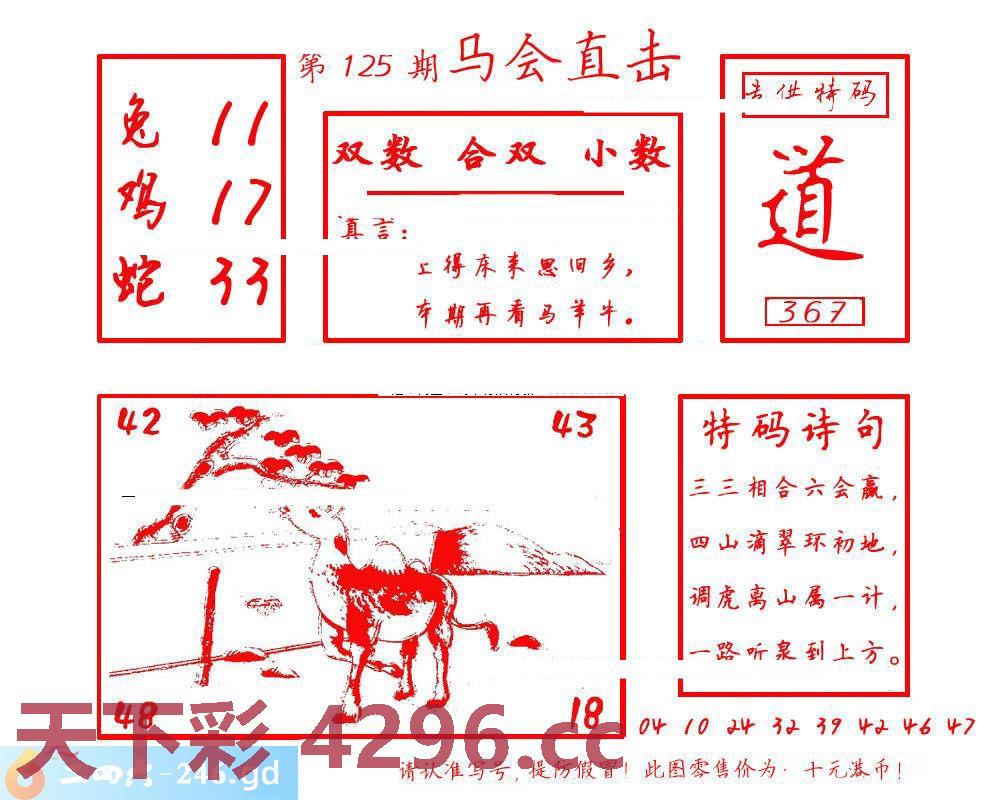 第 125 期 马会直击
兔 11
鸡 17
蛇 33
双数 合双 小数
真言：
上得床来思旧乡，
本期再看马羊牛。
特码
道
367
42
43
48
18
特码诗句
三三相合六会赢，
四山滴翠环初地，
调虎离山属一计，
一路听泉到上方。
04 10 24 32 39 42 46 47
天下彩 4296.cc
-246.gd
请认准写号，提防假冒！此图零售价为：十元港币！